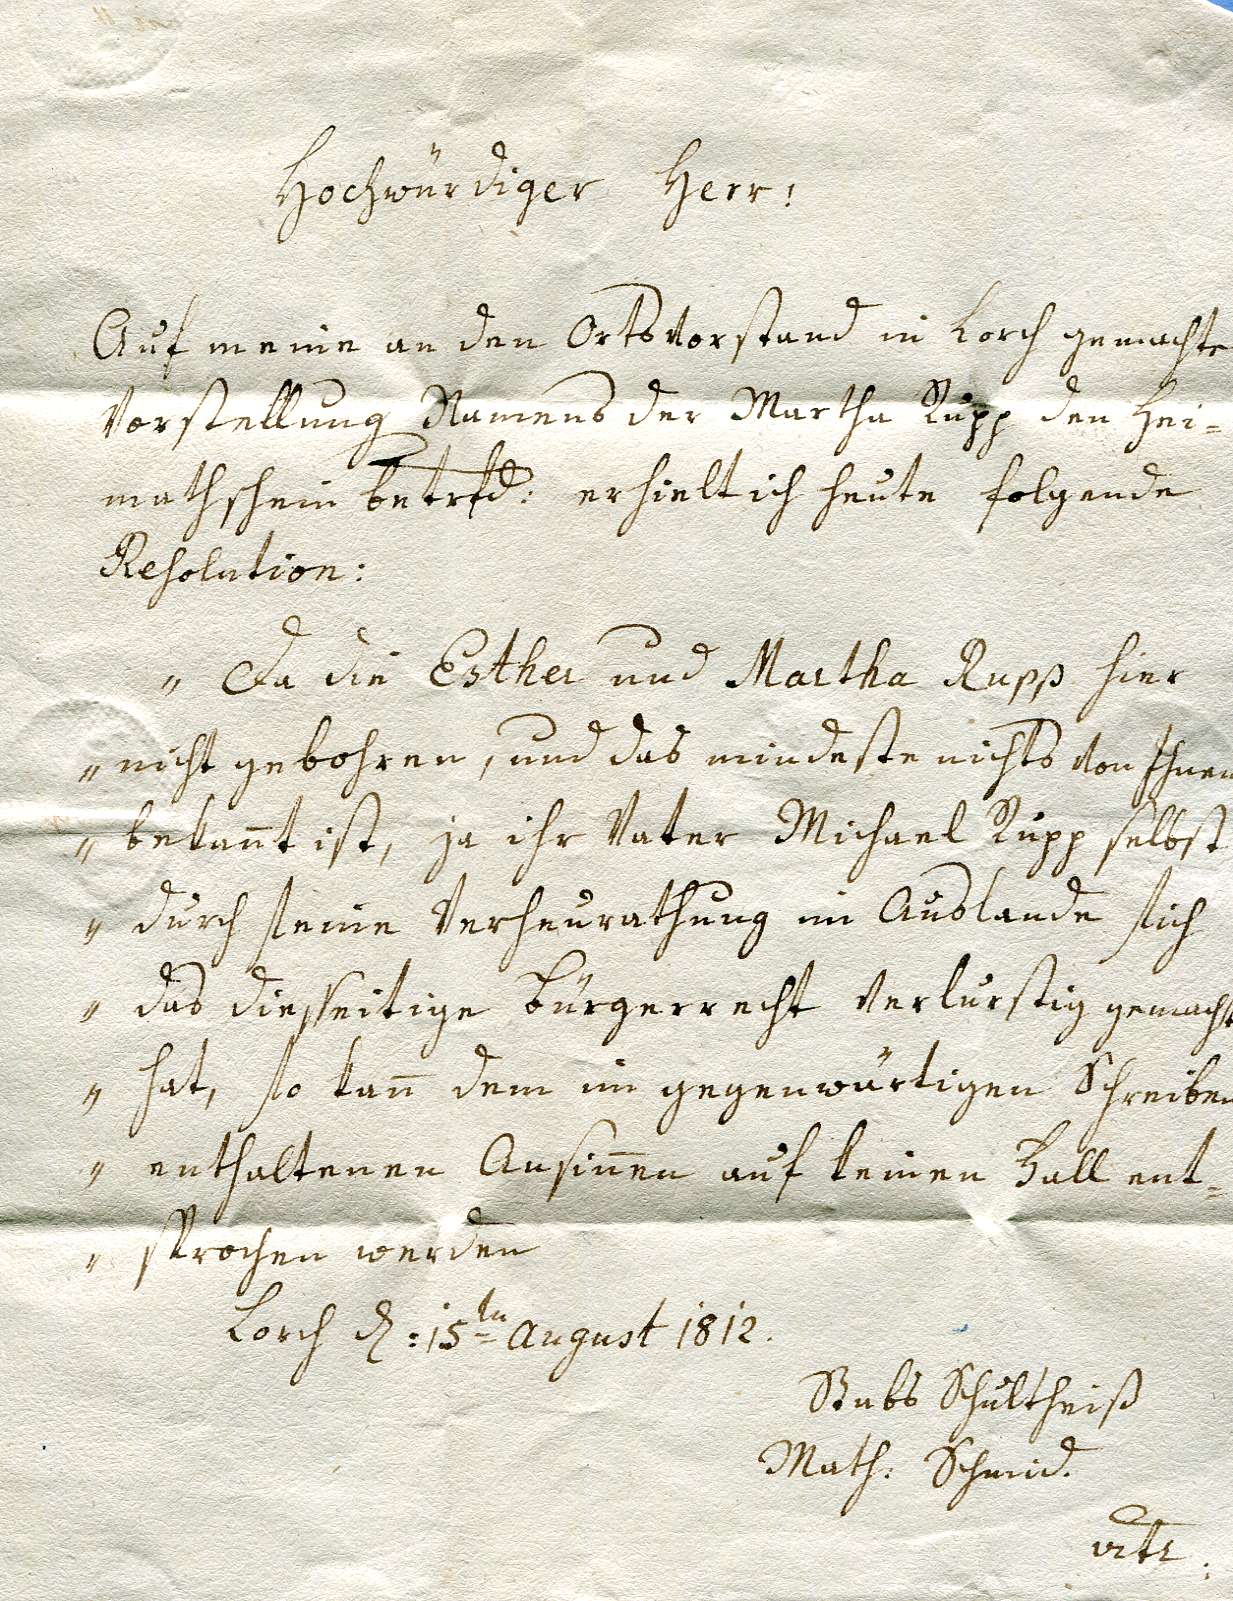 Hochwürdiger Herr!
Auf meine an den Ortsvorstand in Lorch gemachte
Vorstellung Namens der Martha Rupp den Hei=
mathschein betrfd: erhielt ich heute folgende
Resolution:
„ Da die Esther und Martha Rupp hier
„ nicht gebohren, und das mindeste nichts von Ihnen
„ bekan̄t ist, ja ihr Vater Michael Rupp selbst
„ durch seine Verheurathung im Auslande sich
„ das diesseitige Bürgerrecht verlurstig gemacht
„ hat, so kan̄ dem im gegenwärtigen Schreiben
„ enthaltenen Ansin̄en auf keinen Fall ent=
„ sprochen werden
Lorch d: 15ten August 1812.
Stabs Schultheiß
Math: Schmid.
vtt: